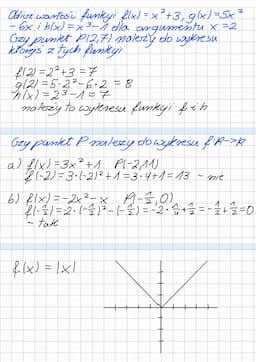 Oblicz wartości funkcji f(x)=x²+3, g(x)=5x²
-6x i h(x)=x³-1 dla argumentu x=2
Czy punkt P(2,7) należy do wykresu
którejś z tych funkcji
f(2)=2²+3=7
g(2)=5·2²-6·2=8
h(x)=2³-1=7
należy to wykresu funkcji f i h
Czy punkt P należy do wykresu f R->R
a) f(x)=3x²+1 P(-2,11)
f(-2)=3·(-2)²+1=3·4+1=13 - nie
b) f(x)=-2x²-x P(-½,0)
f(-½)=2·(-½)²-(-½)=-2·¼+½=-½+½=0
- tak
f(x)=|x|